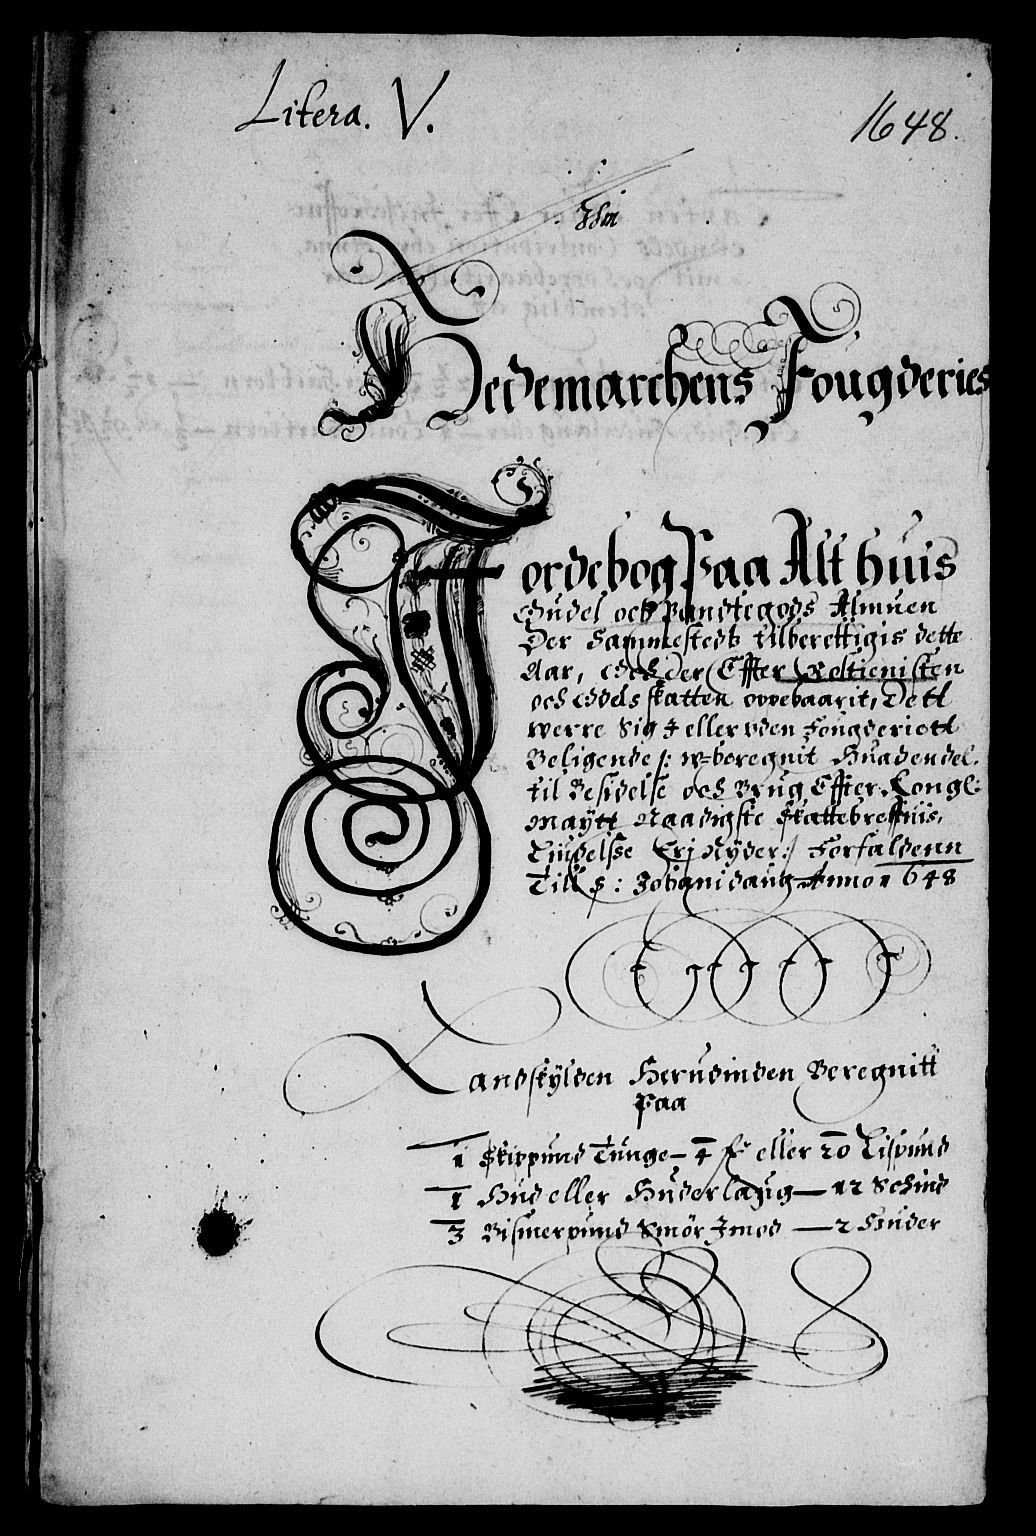 Litera. V.
1648.
Hedemarchens Fougderies
Jordebog Paa Alt huis
Gudel och Pandtegods Almuen
Der Sammestedtz tilberettigis dette
Aar, och Der Effter Roltienisten
och Odels skatten oppebaarit, Dett
werre Sig I eller vden Fougderiett
Beligende /: w-beregnit Huadendel.
til Besidelse och Brug Effter Kongl:
Maÿtt Naadigste Skattebreffuis,
Liudelsse frj Nÿder:/ Forfaldenn
Till S: Johanj daug Anno 1648
Landskÿlden Herudinden Beregnitt
Paa
1 Skippund Tunge — 4 eller 20 Lispund
1 Hud eller Huderlaug — 12 Schind
3 Bismerpund Smör Imod — 2 Huder